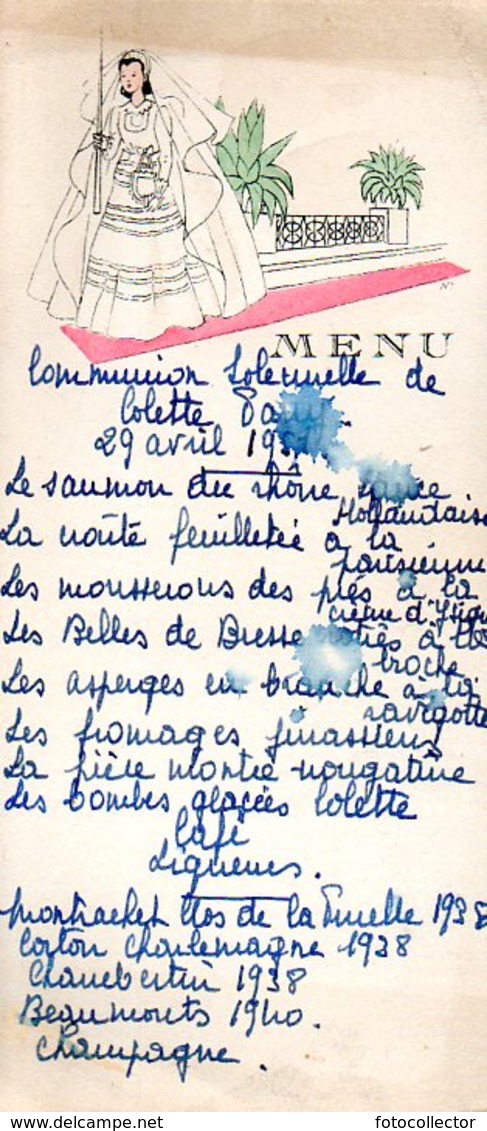 MENU
Communion Solennelle de
Colette
29 avril
Le saumon du rhône sauce
Hollandaise
La croûte feuilletée à la
parisienne
Les mousserons des prés à la
crème d'Isigny
Les Belles de Bresse roties à la
broche
Les asperges en branche à la
ravigotte
Les fromages jurassiens
La pièce montée nougatine
Les bombes glacées Colette
Café
Liqueurs.
Montrachet Clos de la Pucelle 1938
Corton Charlemagne 1938
Chambertin 1938
Beaumonts 1940.
Champagne.
fotocollector